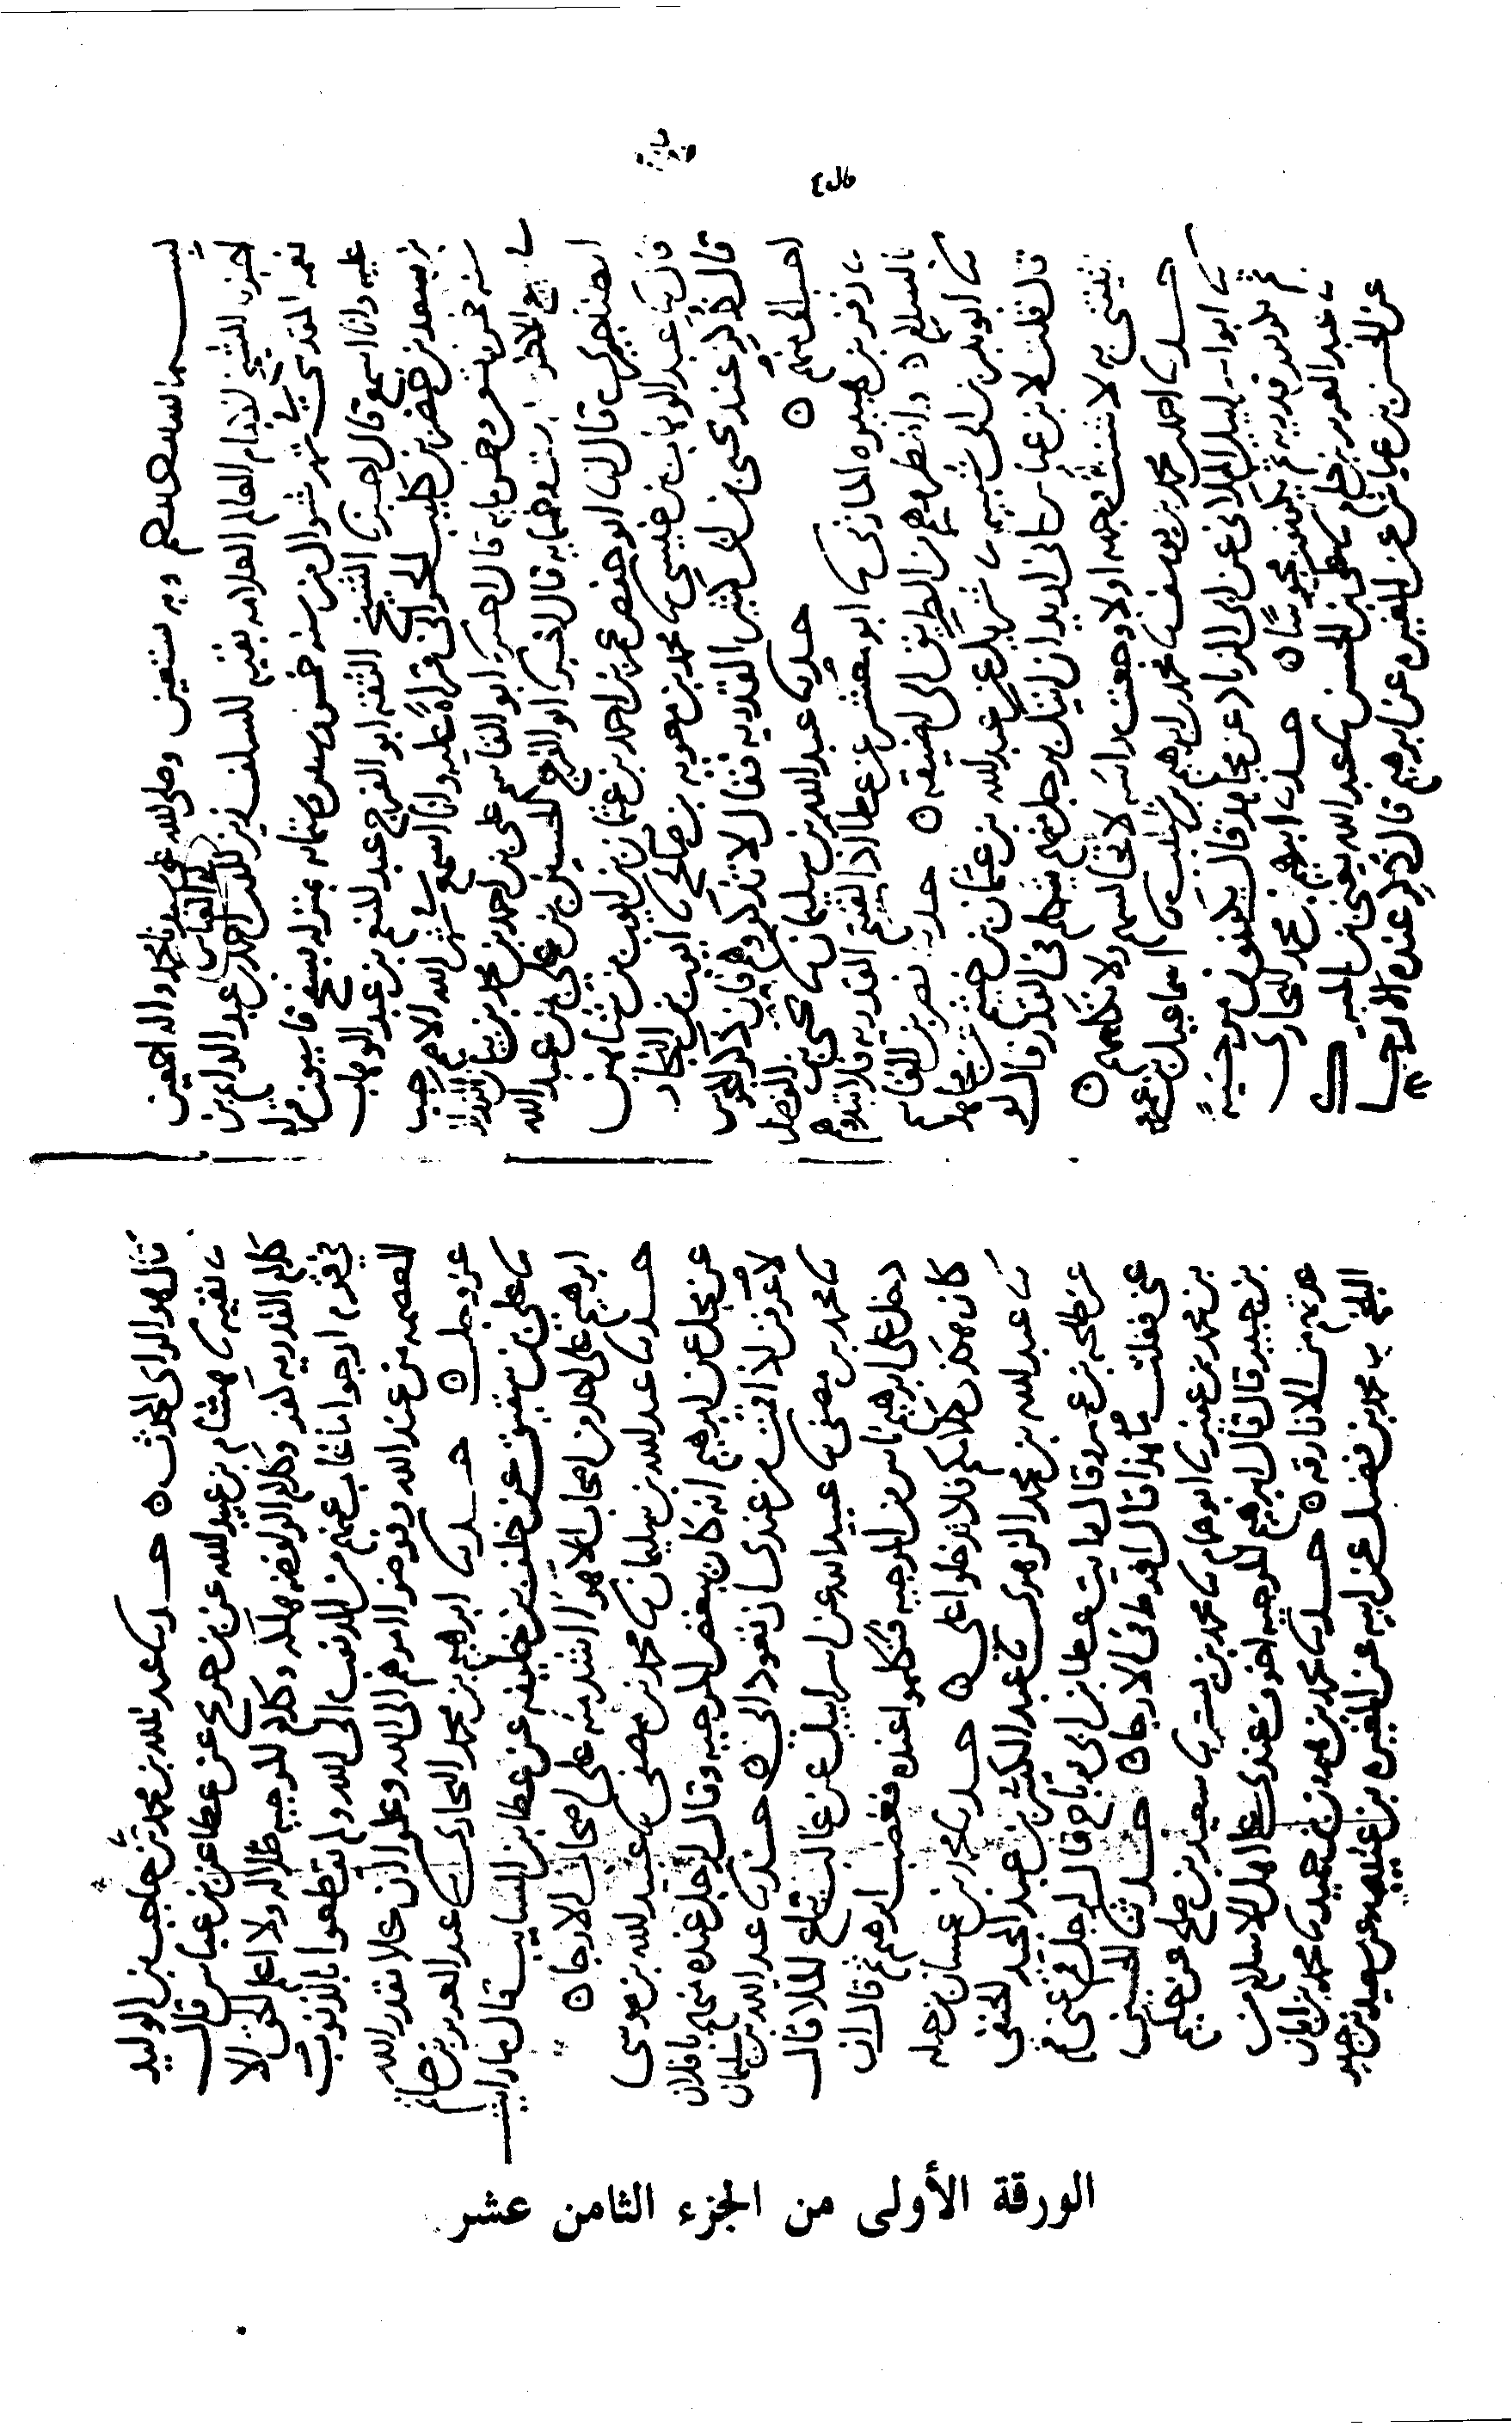 بسم الله الرحمن الرحيم وبه نستعين وصلى الله على سيدنا محمد واله اجمعين
اخبرنا الشيخ الامام العالم العلامه بقيه السلف زين الدين ابو العباس احمد بن عبد الدايم بن
نعمه المقدسي في شهر شوال من سنه خمس وستين وستمايه بمنزله بسفح قاسيون
عليه وانا اسمع قال اخبرنا الشيخ الثقه ابو الفرج عبد المنعم بن عبد الوهاب
بن سعد بن خضر بن كليب الحراني قراة عليه وانا اسمع في شهر الله الاصم رجب
سنه وخمس مايه قال اخبرنا ابو القاسم علي بن احمد بن محمد بن بيان الرزاز
في ربيع الاخر وخمسمايه قال اخبرنا ابو الفرج الحسين بن علي بن عبيد الله
الطناجيري قال انبا ابو حفص عمر بن احمد بن عثمان بن ايوب بن شاهين
قال ثنا عبد الوهاب بن عيسى ثنا محمد بن معويه بن صالح ثنا ايوب بن النجار
قال ذكر عند يحيى بن ابي كثير القدريه فقال لا تذكروهم فان ذكر المجوس
احب الي منهم ه حدثنا عبد الله بن سليمان ثنا يحيى بن الفضل
ثنا زفر بن هبيره المازني ثنا ابو معشر عن عطا اذا لقيتم القدريه فلا تبدوهم
بالسلام واضطروهم من الطريق الى اضيقه ه حدثنا نصر بن القاسم
ثنا ابو بكر بن ابي شيبه ثنا شريك عن عبد الله بن عثمان بن خثيم عن مجاهد
قال قلت لابن عباس اني اريد ان اتيك برجل منهم يتكلم في القدر قال لو
تيتني به لا وجهه ولاوجعت راسه لا تجالسهم ولا تكلمهم ه
حدثنا احمد بن محمد بن يوسف ثنا محمد بن ابرهيم بن ثنا اسماعيل بن عمرو
ثنا ابو اسرايل الملائي عن ابي الزناد عن مجاهد قال يكونون مرجئية
ثم يكونون قدريه ثم يكونون مجوسا ه حدثنا ابرهيم بن محمد البخاري
ثنا عبد العزيز بن حاتم ثنا علي بن الحسن ثنا عبد الله يعني بن المبارك
عن الحسن بن عياش عن المغيره عن ابرهيم قال ذكر عنده الارجا
قال هو الراي المحدث ه حدثنا عبد الله بن محمد ثنا حاجب بن الوليد
ثنا بقيه ثنا هشام بن عبيد الله عن بن جريج عن عطا عن بن عباس قال
كلام القدريه كفر وكلام الرافضه هلكه وكلام المرجيه ضلاله ولا اعلم الحق الا
في قوم ارجوا ما غاب عنهم من الذنوب الى الله ولم يقطعوا بالذنوب
العصمه من عند الله وفوضوا امرهم الى الله وعلموا ان كلا بقدر الله
عز وجل ه حدثنا ابرهيم بن محمد البخاري ثنا عبد العزيز بن حاتم
ثنا علي بن شقيق عن خلف بن خليفه عن عطا بن السايب قال ما رايت
ابرهيم على احد من اصحاب الاهوا اشد منه على اصحاب الارجا ه
حدثنا عبد الله بن سليمان ثنا محمد بن مصفى ثنا عبيد الله بن موسى
عن محل عن ابرهيم انه كان يبغض المرجيه وقال لرجل عنده منهم يا فلان
لا اعرفن اذا قمت من عندي ان تعود الي ه حدثنا عبد الله بن سليمان
ثنا محمد بن مصفى ثنا عبيد الله عن اسرايل عن غالب قال
دخل على ابرهيم ناس من المرجيه فتكلموا عنده فغضب ابرهيم ثم قال ان
كان هذا كلامكم فلا تدخلوا علي ه حدثنا محمد بن غسان بن جبله
ثنا عبد الله بن محمد الزهري ثنا عبد الكبير بن عبد المجيد الحنفي
عن طلحه بن عمرو قال رايت عطا بن ابي رباح قال لرجل قم عني قم
عني فقلت ما هذا قال افرط في الارجا ه حدثنا الحسين
بن محمد بن عفير ثنا ابو همام ثنا محمد بن بشر ثنا سعيد بن صالح عن حكيم
بن جبير قال قال ابرهيم للمرجيه اخوف عندي على اهل الاسلام من
عدتهم من الازارقه ه حدثنا محمد بن هرون بن حميد ثنا محمد بن ابان
البلخي ثنا محمد بن فضيل عن ابيه عن المغيره بن عتيبه عن سعيد بن جبير
الورقة الأولى من الجزء الثامن عشر